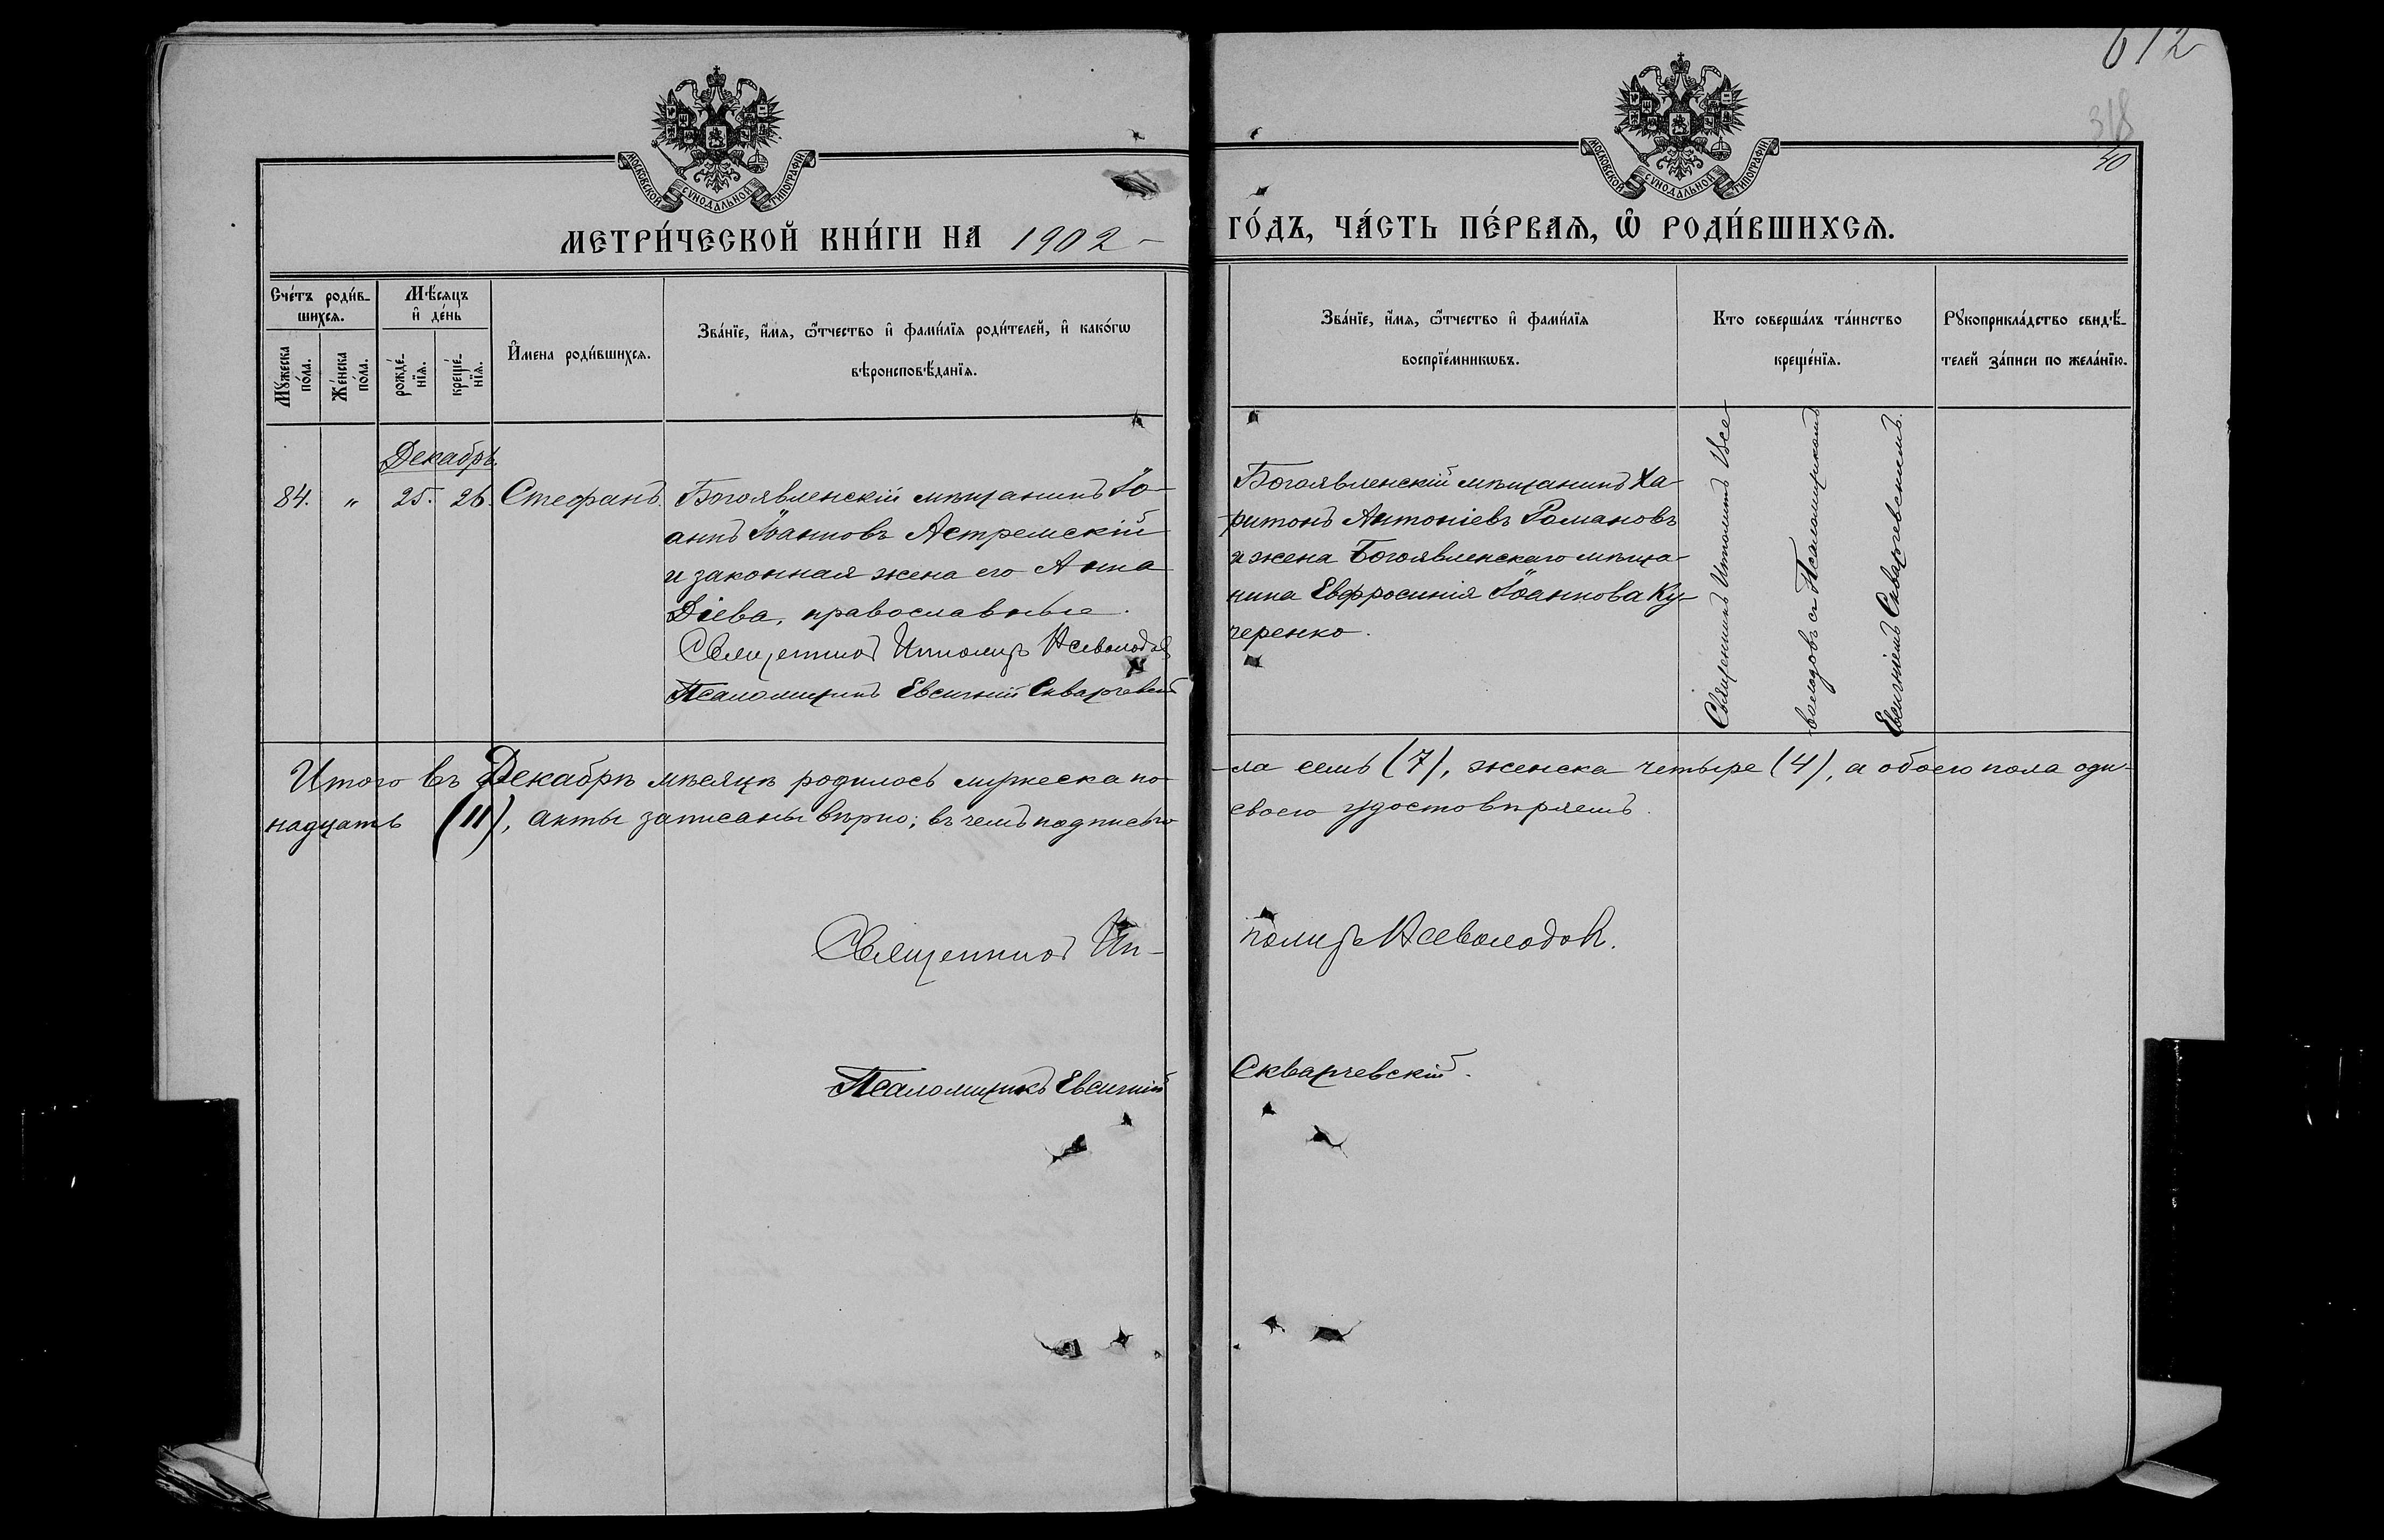 612
318
40
МОСКОВСКОЙ СѴНОДАЛЬНОЙ ТИПОГРАФІИ
МОСКОВСКОЙ СѴНОДАЛЬНОЙ ТИПОГРАФІИ
МЕТРИ́ЧЕСКОЙ КНИ́ГИ НА 1902
ГО́ДЪ, ЧА́СТЬ ПЕ́РВАЯ, Ѽ РОДИ́ВШИХСЯ.
Сче́тъ роди́в-
шихся.
Мꙋ́жеска по́ла.
Же́нска по́ла.
Мѣ́сяцъ
и҆ де́нь
рожде́-
нїя.
креще́-
нїя.
И҆мена роди́вшихся.
Зва́нїе, и҆́мя, ѻ҆́тчество и҆ фами́лїя роди́телей, и҆ како́гѡ
вѣроисповѣ́данїя.
Зва́нїе, и҆́мя, ѻ҆́тчество и҆ фами́лїя
воспрїе́мникѡвъ.
Кто соверша́лъ та́инство
креще́нїя.
Рꙋкоприкла́дство свидѣ́-
телей за́писи по жела́нїю.
Декабрь.
84. „ 25. 26. Стефанъ.
Богоявленскій мѣщанинъ Іо-
аннъ Іоанновъ Астремскій
и законная жена его Анна
Діева, православные.
Священникъ Ипполитъ Всеволодовъ
Псаломщикъ Евсигній Скварчевскій
Богоявленскій мѣщанинъ Ха-
ритонъ Антоніевъ Романовъ
и жена Богоявленскаго мѣща-
нина Евфросинія Іоаннова Ку-
черенко.
Священникъ Ипполитъ Все-
володовъ съ Псаломщикомъ
Евсигніемъ Скварчевскимъ.
Итого въ Декабрѣ мѣсяцѣ родилось мужеска по-
ла семь (7), женска четыре (4), а обоего пола оди-
надцать (11), акты записаны вѣрно; въ чемъ подписью
своею удостовѣряемъ.
Священникъ Ип-
политъ Всеволодовъ.
Псаломщикъ Евсигній
Скварчевскій.